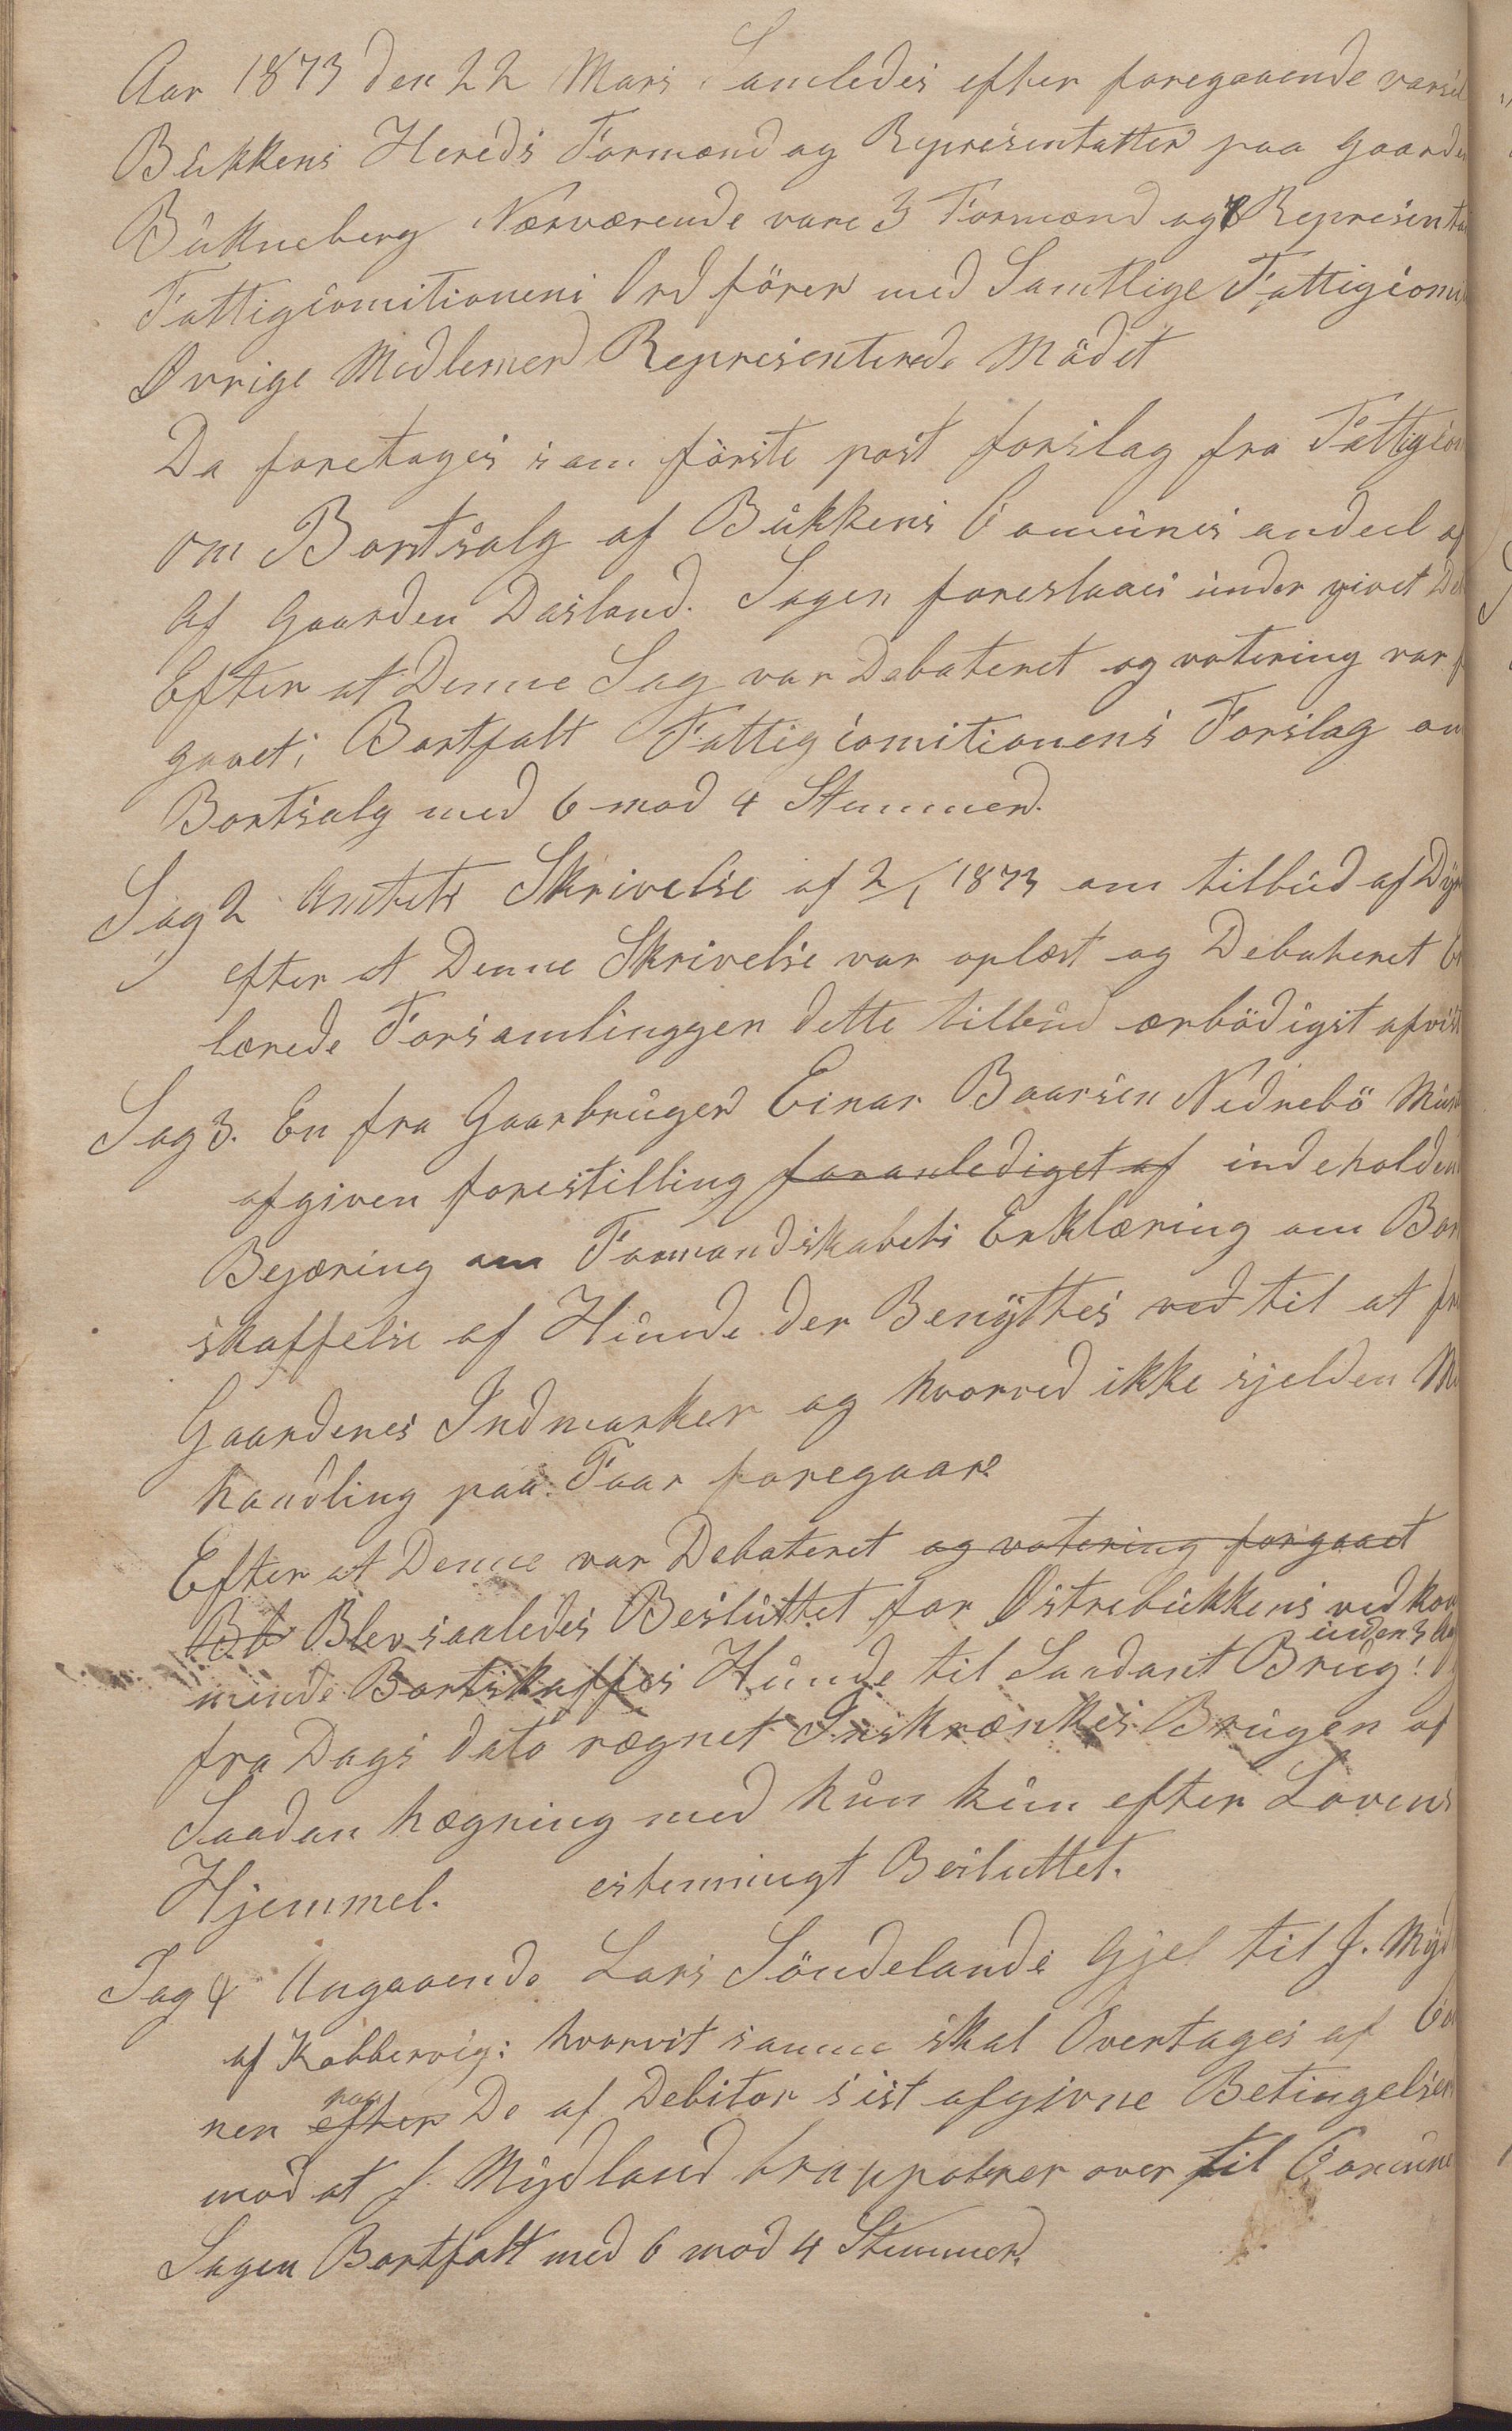 Aar 1873 den 22 Mars. Samledes efter foregaaende varsel
Bukkens Hereds Formænd og Represintatter paa Gaarde
Bukneberg Nærværende vare 3 Formænd og 7 Represinta
Fattigcomitionens Ordförer med Samtlige Fattigcomi
Øvrige Medlemer Represinterede Mödet
Da foretoges som förste post forslag fra Fattigcom
om Bortsalg af Bukkens Comunes andeel af
Af Gaarden Dasland. Sagen foreslaaes under givet De
Efter at Denne Sag var Debateret og votering var f
gaaet; Bortfalt Fattigcomitionens Forslag om
Bortsalg med 6 mod 4 Stemmer.
Sag 2 Amtets Skrivelse af 2/1 1873 om tilbud af Dyr
efter at Denne Skrivelse var oplæst og Debateret Er
lærede Forsamlinggen dette tilbud ærbödigst afvist
Sag 3. En fra Gaarbruger Einar Baarsen Nedrebö Mun
afgiven forestilling foranlediget af indeholden
Begæring om Formandskabets Erklæring om Bor
skaffelse af Hunde der Benyttes ved til at fr
Gaardenes Indmarker og hvorved ikke sjelden Mi
handling paa Faar foregaar.
Efter at Denne var Debateret og votering forgaaet
Bb Blev saaledes Besluttet for Østrebukkens vedkom
mende Bortskaffes Hunde til Saadant Brug! inden 3 Aa
fra Dags dato rægnet Inskrænkes Brugen af
Saadan hægning med hun kun efter Lovens
Hjemmel. estemmigt Besluttet.
Sag 4 Angaaende Lars Söndelands Gjel til J. Myd
af Kobbervig: hvorvit samme skal Overtages af Co
nen efter paa De af Debitor sist afgivne Betingelser
mod at J. Mydland transporterer over til Comune
Sagen Bortfalt med 6 mod 4 Stemmer.